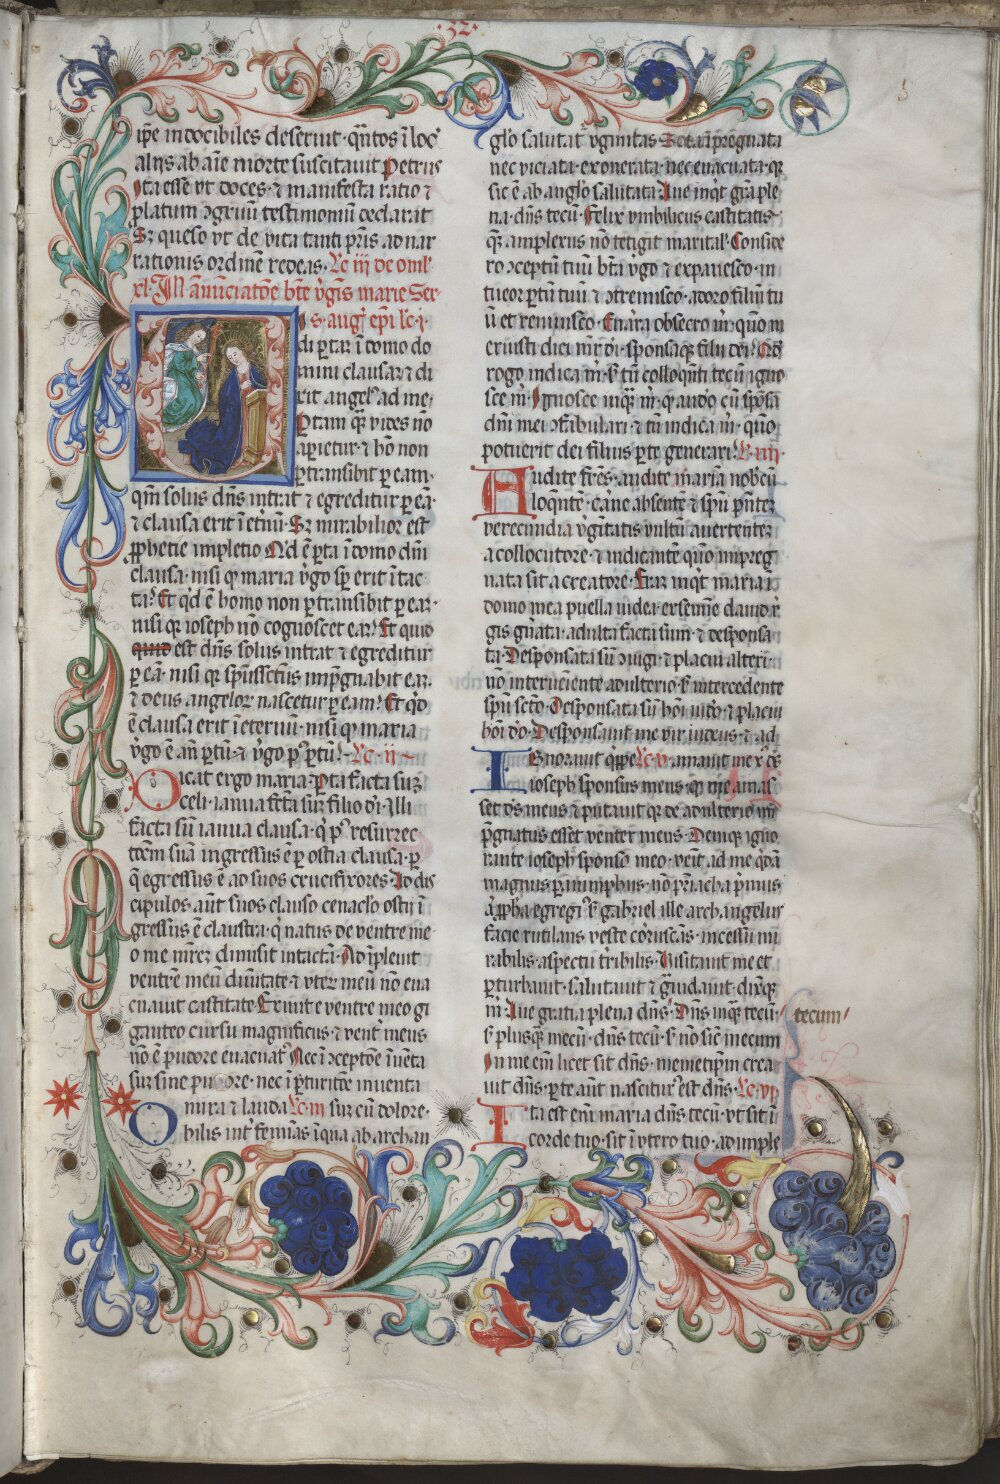 ·32·
ip̄e indocibiles deseruit · q̄ntos ī loc̄
alijs ab aīe morte suscitauit Petrus
Ita esse vt doces · ⁊ manifesta ratio ⁊
p̄latum ꝯgruū testimoniū declarat
Sꝫ queso vt de vita tanti p̄ris ad nar
rationis ordinē redeas
In ānūciatōe btē v̄gīs marie Ser
is auḡ ep̄i lc̄ ·i·
di ꝑta ī domo do
mini clausa ⁊ di
xit angelꝰ ad me ·
Ptam quā vides nō
apietur · ⁊ hō non
ꝑtransibit ꝑ eam ·
qm̄ solus dn̄s intrat ⁊ egreditur ꝑ eā
⁊ clausa erit ī etn̄ū · Sꝫ mirabilior est
ꝓphetie impletio Qͥd ē ꝑta ī domo dn̄i
clausa · nisi ꝙ maria v̄go sꝑ erit ītac
ta? Et qͥd ē homo non ꝑtransibit ꝑ eaꝫ ·
nisi qꝫ ioseph nō cognoscet eaꝫ? Et quid
quid est dn̄s solus intrat ⁊ egreditur
ꝑ eā · nisi qꝫ sp̄ūssctūs imp̄gnabit eaꝫ
⁊ deus angeloꝝ nascetur ꝑ eam? Et qͥd
ē clausa erit ī eternū · nisi ꝙ maria
v̄go ē an̄ ꝑtū · ⁊ v̄go pꝰ ꝑtū? Lc̄ ·ii·
Dicat ergo maria · ꝑta facta suꝫ
celi · ianua fc̄ta suꝫ filio dei · Illi
facta sū ianua clausa · qͥ pꝰ resurrec
tōem suā ingressus ē ꝑ ostia clausa · ꝑ
q̄ egressus ē ad suos crucifixores · Ad dis
cipulos aūt suos clauso cenaclo ostij ī
gressus ē claustra · qͥ natus de ventre me
o me mr̄eꝫ dimisit intactā · Adīpleuit
ventrē meū diuītate · ⁊ vteꝝ meū nō eua
cuauit castitate · Exiuit e ventre meo gi
ganteo cursu magnificus · ⁊ vent̄ meus
nō ē pudore euacuatꝰ Nec ī ꝯceptōe īuēta
suꝫ sine pudore · nec ī ꝑturitōe inuenta
mira ⁊ lauda Lc̄ ·iii· suꝫ cū dolore ·
O bilis int̄ femīas īqua ab archan
glo salutat̄ v̄gīnitas Secta īpregnata
nec viciata · exonerata · nec euacuata · qꝫ
sic ē ab angło salutata · Aue inqͥt gr̄a ple
na · dn̄s tecū · Felix vmbilicus castitatis
quē amplexus nō tetigit marital̄ · Conside
ro ꝯceptū tuū bt̄a v̄go ⁊ expauesco · in
tueor ꝑtū tuū ⁊ ꝯtremisco · adoro filiū tu
ū et reminisco · Enarra obsecro m̄ · quō m
eruisti dici mr̄ dei · sponsaqꝫ filij dei?
rogo indica m̄ · sꝫ tū colloqn̄ti tecū igno
sce m̄ · Ignosce inqꝫ m̄ · qꝫ audeo cū sponsa
dn̄i mei ꝯfabulari · ⁊ tū indica m̄ · quō
potuerit dei filius ꝑ te generari? Lc̄ ·iiij·
Audite frēs · audite maria nobcū
loquēte · eāne absente ⁊ spū pn̄teꝫ
verecundia v̄gītatis vultū auertenteꝫ
a collocutore · ⁊ indicante quō impreg
nata sit a creatore · Erā inqͥt maria ī
domo mea puella iudea · ex semīe dauid r̄
gis gn̄ata · adulta facta sum · ⁊ desponsa
ta · Desponsata sū ꝯiugi · ⁊ placui alteri ·
nō interueniente adulterio · sꝫ intercedente
spū scto · Desponsata sū hōi viro · ⁊ placui
hōi dō · Desponsauit me vir iudeus · ⁊ ad
Ignorauit qͥppe Lc̄ ·v· amauit me xc̄ ds̄
ioseph sponsus meus qꝫ me amas
set ds̄ meus ⁊ putauit qꝫ de adulterio īm
p̄gnatus esset venter meus · Deniqꝫ igno
rante ioseph sponso meo · veīt ad me q̄dā
magnus paranymphus · nō pr̄iarcha p̄mus
aut ꝓpheta egregiꝰ sꝫ gabriel ille archangelus
facie rutilans · veste coruscās · incessu mi
rabilis · aspectu tribilis · Uisitauit me et
ꝑturbauit · salutauit ⁊ grauidauit · dixitqꝫ
m̄ · Aue gratia plena dn̄s · Dn̄s inqꝫ tecū / tecum /
sꝫ plusqꝫ mecū · dn̄s tecū · sꝫ nō sic mecum
In me em̄ licet sit dn̄s · memetip̄m crea
uit dn̄s · ꝑ te aūt nascitur est dn̄s · Lc̄ ·vi·
Ita est em̄ maria dn̄s tecū · vt sit ī
corde tuo · sit ī vtero tuo · adimple